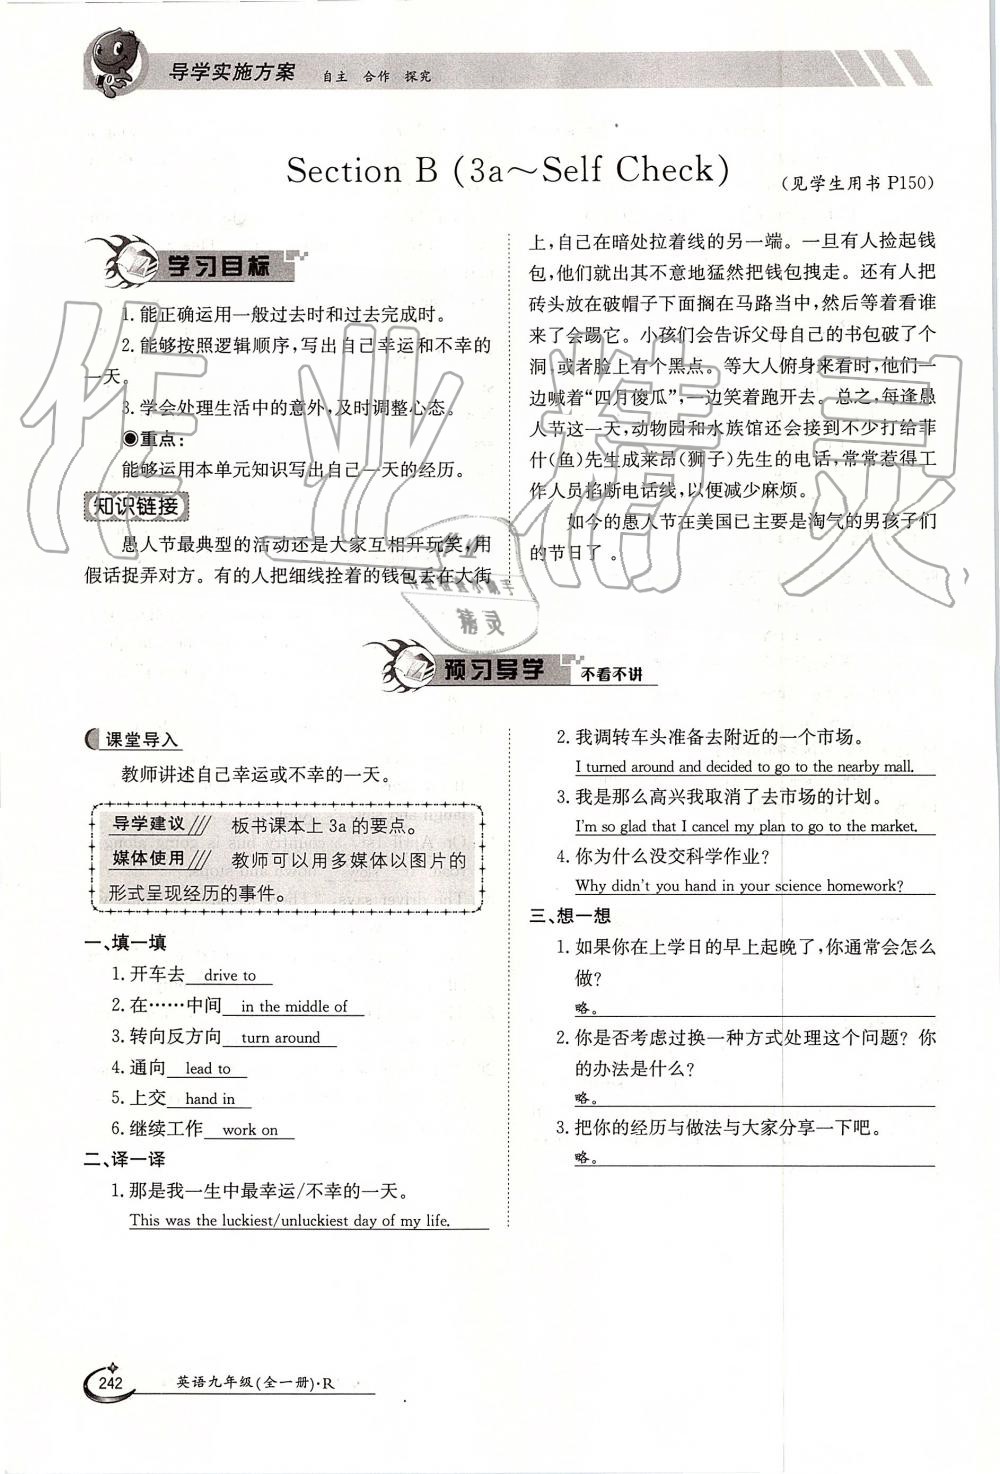 导学实施方案 自主 合作 探究
Section B (3a～Self Check)
(见学生用书 P150)
学习目标
1. 能正确运用一般过去时和过去完成时。
2. 能够按照逻辑顺序,写出自己幸运和不幸的
一天。
3. 学会处理生活中的意外,及时调整心态。
◉重点:
能够运用本单元知识写出自己一天的经历。
知识链接
愚人节最典型的活动还是大家互相开玩笑,用
假话捉弄对方。有的人把细线拴着的钱包丢在大街
上,自己在暗处拉着线的另一端。一旦有人捡起钱
包,他们就出其不意地猛然把钱包拽走。还有人把
砖头放在破帽子下面搁在马路当中,然后等着看谁
来了会踢它。小孩们会告诉父母自己的书包破了个
洞,或者脸上有个黑点。等大人俯身来看时,他们一
边喊着“四月傻瓜”,一边笑着跑开去。总之,每逢愚
人节这一天,动物园和水族馆还会接到不少打给菲
什(鱼)先生或莱昂(狮子)先生的电话,常常惹得工
作人员掐断电话线,以便减少麻烦。
如今的愚人节在美国已主要是淘气的男孩子们
的节日了 。
预习导学 不看不讲
课堂导入
教师讲述自己幸运或不幸的一天。
导学建议/// 板书课本上 3a 的要点。
媒体使用/// 教师可以用多媒体以图片的
形式呈现经历的事件。
一、填一填
1. 开车去 drive to
2. 在……中间 in the middle of
3. 转向反方向 turn around
4. 通向 lead to
5. 上交 hand in
6. 继续工作 work on
二、译一译
1. 那是我一生中最幸运/不幸的一天。
This was the luckiest/unluckiest day of my life.
2. 我调转车头准备去附近的一个市场。
I turned around and decided to go to the nearby mall.
3. 我是那么高兴我取消了去市场的计划。
I'm so glad that I cancel my plan to go to the market.
4. 你为什么没交科学作业?
Why didn't you hand in your science homework?
三、想一想
1. 如果你在上学日的早上起晚了,你通常会怎么
做?
略。
2. 你是否考虑过换一种方式处理这个问题? 你
的办法是什么?
略。
3. 把你的经历与做法与大家分享一下吧。
略。
242 英语九年级(全一册)·R
作业精灵
精灵